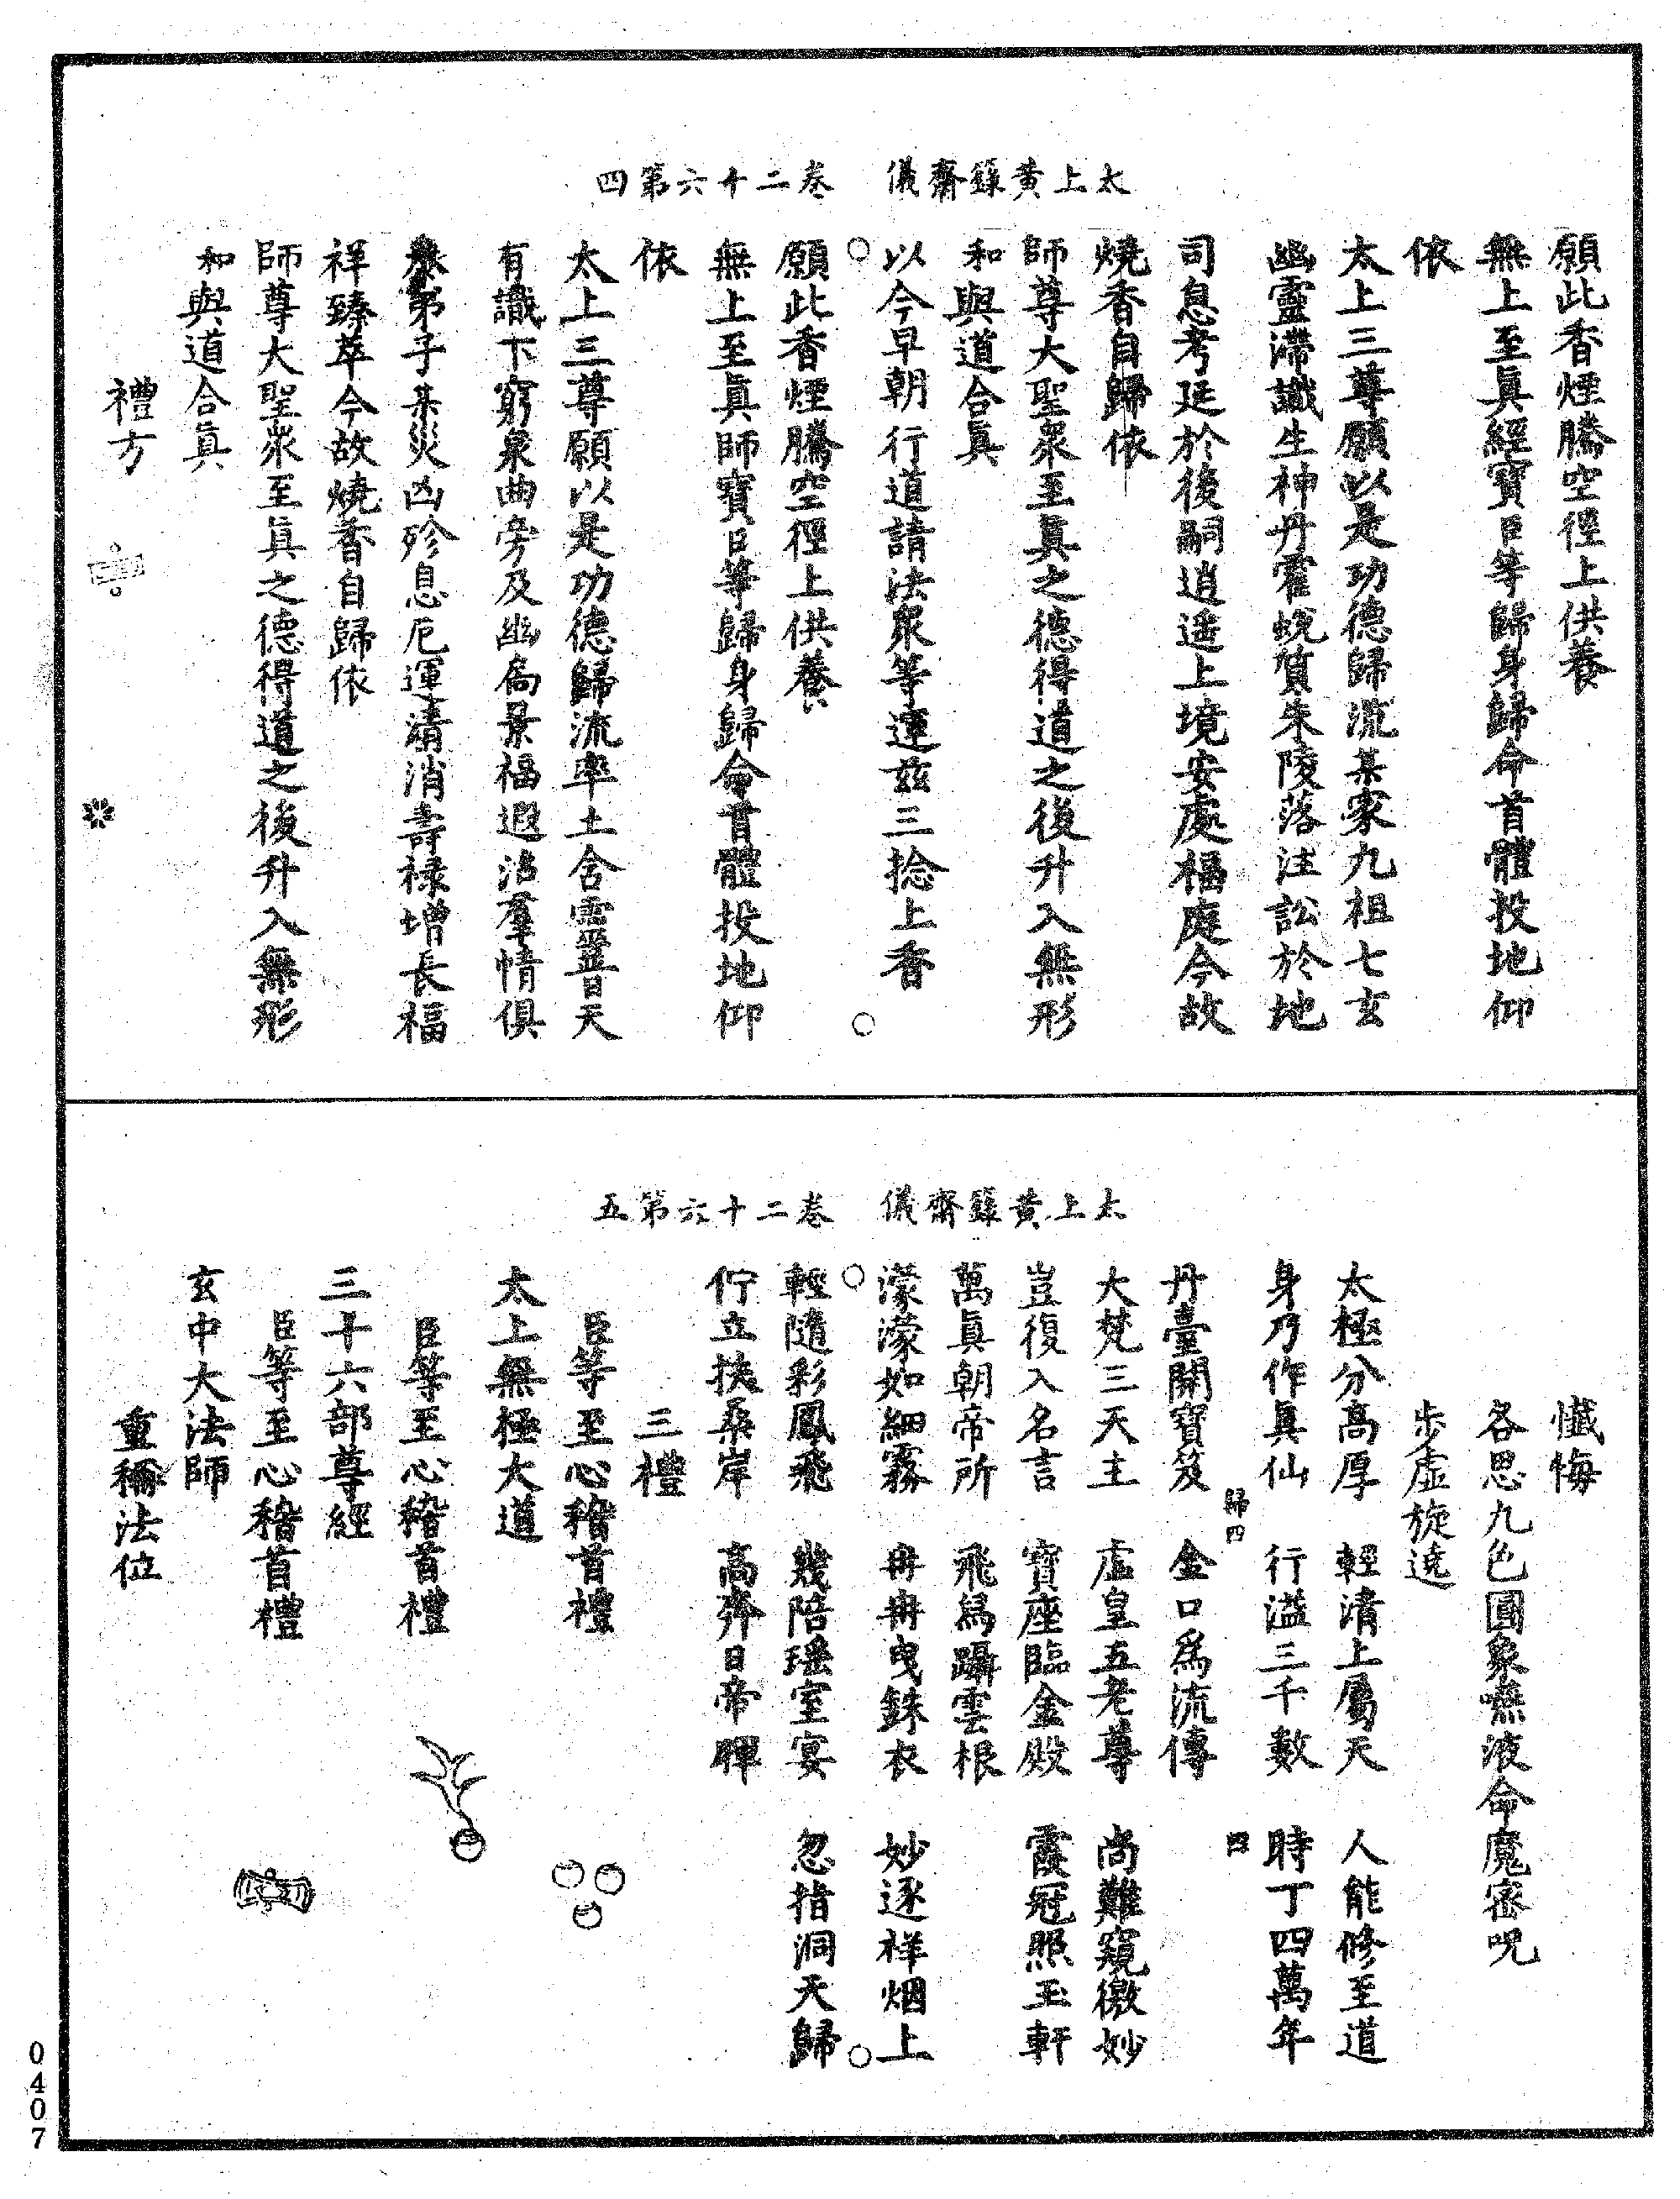 太上黃籙齋儀　卷二十六第四
願此香煙騰空徑上供養
無上至眞經寶臣等歸身歸命首體投地仰
依
太上三尊願以是功德歸流某家九祖七玄
幽靈滯識生神丹霍蛻質朱陵落注訟於地
司息考延於後嗣逍遥上境安處福庭今故
燒香自歸依
師尊大聖衆至眞之德得道之後升入無形
和與道合眞
以今早朝行道請法衆等運茲三捻上香
願此香煙騰空徑上供養
無上至眞師寶臣等歸身歸命首體投地仰
依
太上三尊願以是功德歸流率土含靈普天
有識下窮泉曲旁及幽扃景福遐沾羣情俱
泰弟子某災凶殄息厄運清消壽祿增長福
祥臻萃今故燒香自歸依
師尊大聖衆至眞之德得道之後升入無形
和與道合眞
禮方
太上黃籙齋儀　卷二十六第五
懺悔
各思九色圓象嚥液命魔密呪
步虛旋遶
太極分高厚　輕清上屬天　人能修至道
身乃作眞仙　行溢三千數　時丁四萬年
丹臺開寶笈　金口爲流傳
歸四　四
大梵三天主　虛皇五老尊　尚難窺微妙
豈復入名言　寶座臨金殿　霞冠照玉軒
萬眞朝帝所　飛舄躡雲根
濛濛如細霧　冉冉曳銖衣　妙逐祥烟上
輕隨彩鳳飛　幾陪瑤室宴　忽指洞天歸
佇立扶桑岸　高奔日帝暉
三禮
臣等至心稽首禮
太上無極大道
臣等至心稽首禮
三十六部尊經
臣等至心稽首禮
玄中大法師
重稱法位
0407